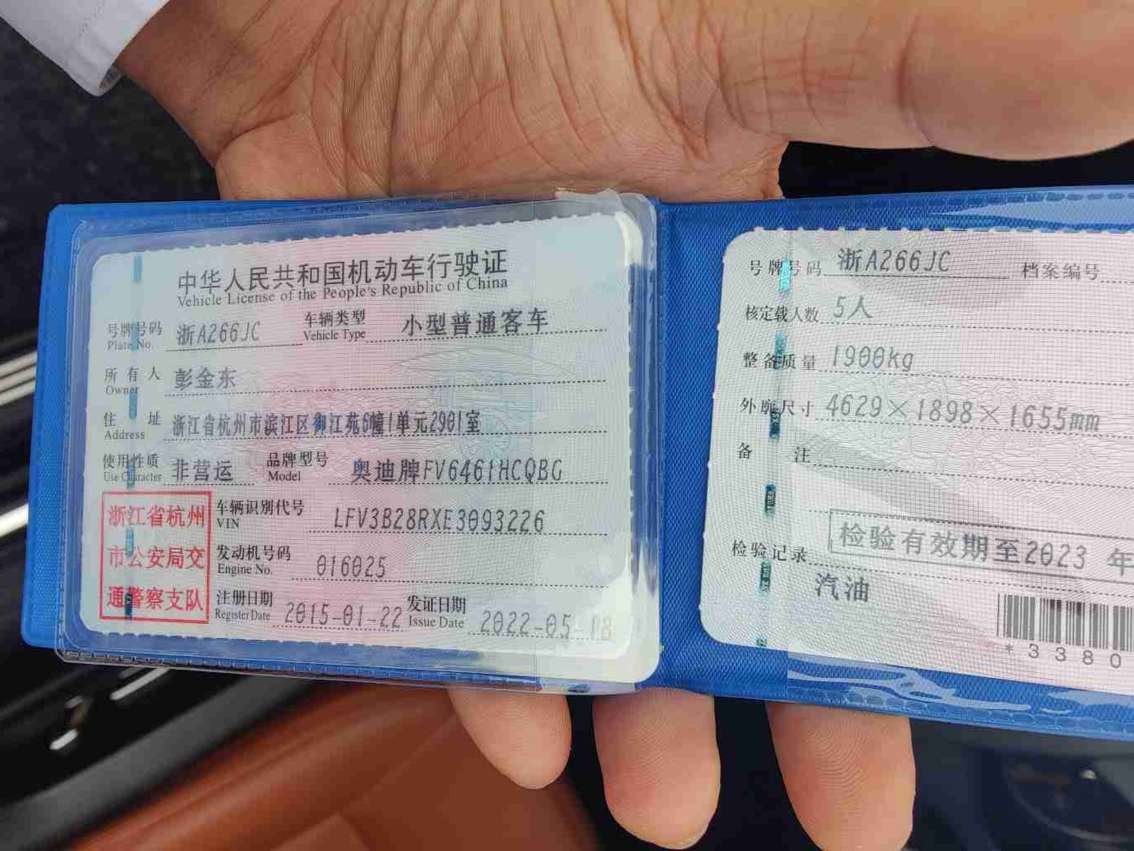 中华人民共和国机动车行驶证
Vehicle License of the People's Republic of China
号牌号码 浙A266JC 车辆类型 小型普通客车
Plate No. Vehicle Type
所有人 彭金东
Owner
住址 浙江省杭州市滨江区御江苑6幢1单元2901室
Address
使用性质 非营运 品牌型号 奥迪牌FV6461HCQBG
Use Character Model
浙江省杭州
市公安局交
通警察支队
车辆识别代号 LFV3B28RXE3093226
VIN
发动机号码 016025
Engine No.
注册日期 2015-01-22 发证日期 2022-05-18
Register Date Issue Date
号牌号码 浙A266JC 档案编号
核定载人数 5人
整备质量 1900kg
外廓尺寸 4629×1898×1655mm
备注
检验有效期至2023 年
检验记录
汽油
*3380